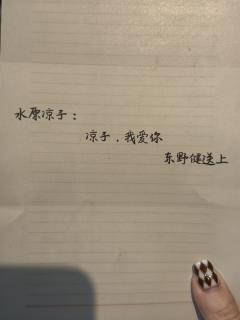 水原凉子：
凉子，我爱你
东野健送上